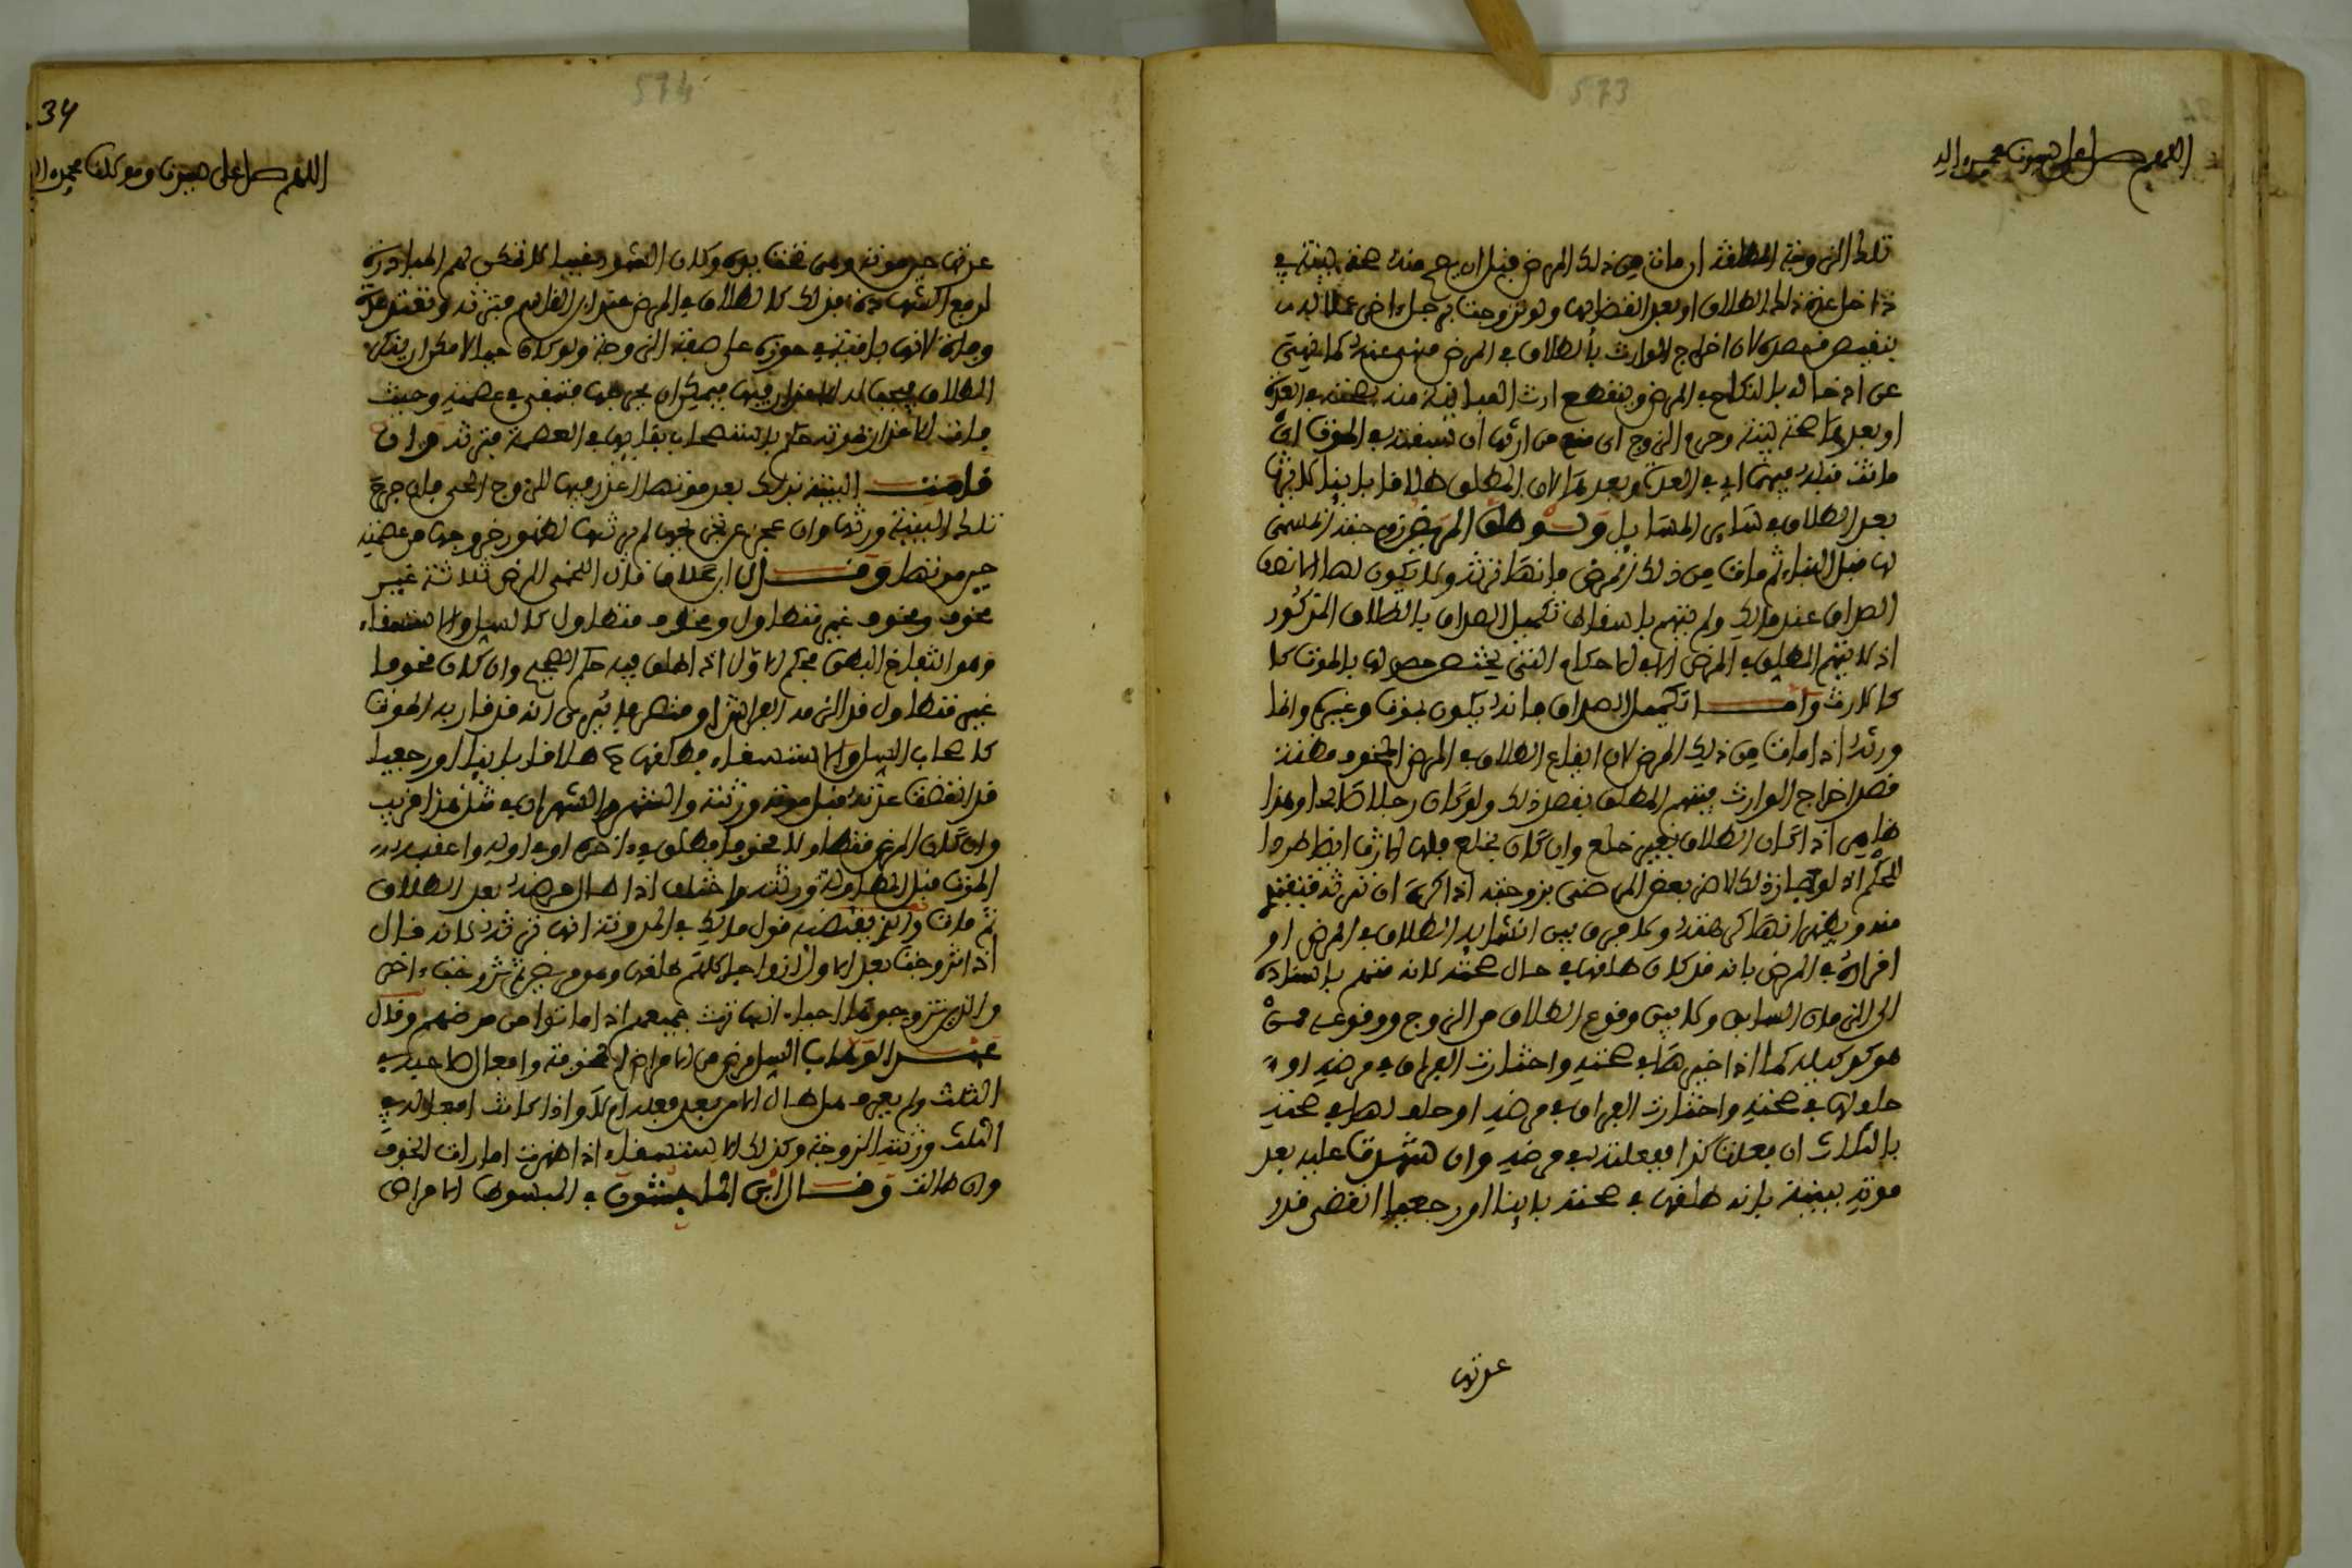 573
اللهم صل على سيدنا محمد واله
تلك الزوجة المطلقة ان مات من ذلك المرض قبل ان يصح منه صحة بينة في
داخل عدة ذلك الطلاق او بعد انقضائها ولو تزوجت برجل اخر عملا
بنقيض قصده لان اخراج الوارث بالطلاق في المرض منهي عنه كما نهي
عن ادخاله بالنكاح في المرض وينقطع ارث المباينة منه بصحته في العدة
او بعدها صحة بينة وحرم الزوج اي منع من ارثها ان سبقته بالموت اي
ماتت قبله فيهما اي في العدة وبعدها لان المطلق طلاقا باينا لا يرثها
بعد الطلاق في سائر المسائل ولو طلق المريض زوجته المسمى
لها قبل البناء ثم مات من ذلك المرض فانها ترثه ولا يكون لها الا نصف
الصداق عند مالك ولم يتهم باسقاط تكميل الصداق بالطلاق المذكور
اذ لا يتهم المطلق في المرض الا في الاحكام التي يختص حصولها بالموت لا
كالارث واما تكميل الصداق فانه يكون بموت وغيره وانما
ورثته اذا مات من ذلك المرض لان ايقاع الطلاق في المرض المخوف مظنة
قصد اخراج الوارث فيتهم المطلق بقصد ذلك ولو كان رجلا صالحا وهذا
ظاهر اذا كان الطلاق بغير خلع وان كان بخلع فلها الارث ايضا طردا
للحكم اذ لو جاز ذلك لاضر بعض المرضى بزوجته اذا كره ان ترثه فتفتدي
منه ويظهر انها كرهته ولا فرق بين انشائه الطلاق في المرض او
اقراره في المرض بانه قد كان طلقها في حال صحته لانه متهم باسناده
الى الزمان السابق ولا بين وقوع الطلاق من الزوج ووقوعه ممن
هو كوكيله كما اذا خيرها في صحته واختارت الفراق في مرضه او
حلولها في صحته واختارت الفراق في مرضه او حلف لها في صحته
بالثلاث ان فعلت كذا ففعلته في مرضه وان شهدت عليه بعد
موته بينة بانه طلقها في صحته باينا او رجعيا انقضى قدر
عدتها
574
34
اللهم صل على سيدنا ومولانا محمد وا
عدتها حين موته وهي تحت يده وكان الشهود غيبا لا تمكن لهم المبادرة
لرفع الشهادة فذلك كالطلاق في المرض عند ابن القاسم فترثه وتعتد عدة
وفاة لانها باقية في حوزه على صفة الزوجة ولو كان حيا لامكن ان ينكر
الطلاق الاعذار فيها فيمكن ان يجرحها فتبقى في عصمته وحيث
مات الاعذار بموته حكم باستصحاب بقائها في العصمة فترثه وان
قامت البينة بذلك بعد موتها اعذر فيها للزوج الحي فان جرح
تلك البينة ورثها وان عجز عن تجريحها لم يرثها لظهور خروجها من عصمته
حين موتها وقال ابن علاق قال اللخمي المرض ثلاثة غير
مخوف ومخوف غير متطاول ومخوف متطاول كالسل والاستسقاء
وهو الثعلاج البطن فحكم الاول اذا طلق فيه حكم الصحيح وان كان مخوفا
غير متطاول قد الزمه الفراش او متطاولا يرى انه قد قارب الموت
كاصحاب السل والاستسقاء فطلقها طلاقا باينا او رجعيا
قد انقضت عدته قبل موته ورثته والشهر والشهران في مثل هذا قريب
وان كان المرض متطاولا مخوفا فطلق في اخره او في اوله واعقبه
الموت قبل المطاولة ورثته واختلف اذا طال مرضه بعد الطلاق
ثم مات والذي يقتضيه قول مالك في المدونة انها ترثه لانه قال
اذا تزوجت بعد الاول ازواجا كلهم طلقها وهو مريض ثم تزوجت اخر
والذين تزوجوها احياء انها ترث جميعهم اذا ماتوا من مرضهم وقال
عبد الوهاب السل مرض من الامراض المخوفة وافعال صاحبه في
الثلث ولم يفرق هل طال الامر بعد فعله ام لا واذا كانت افعاله في
الثلث ورثته الزوجة وكذلك الاستسقاء اذا ظهرت امارات الخوف
وان طالت وقال ابن الماجشون في المبسوط الامراض